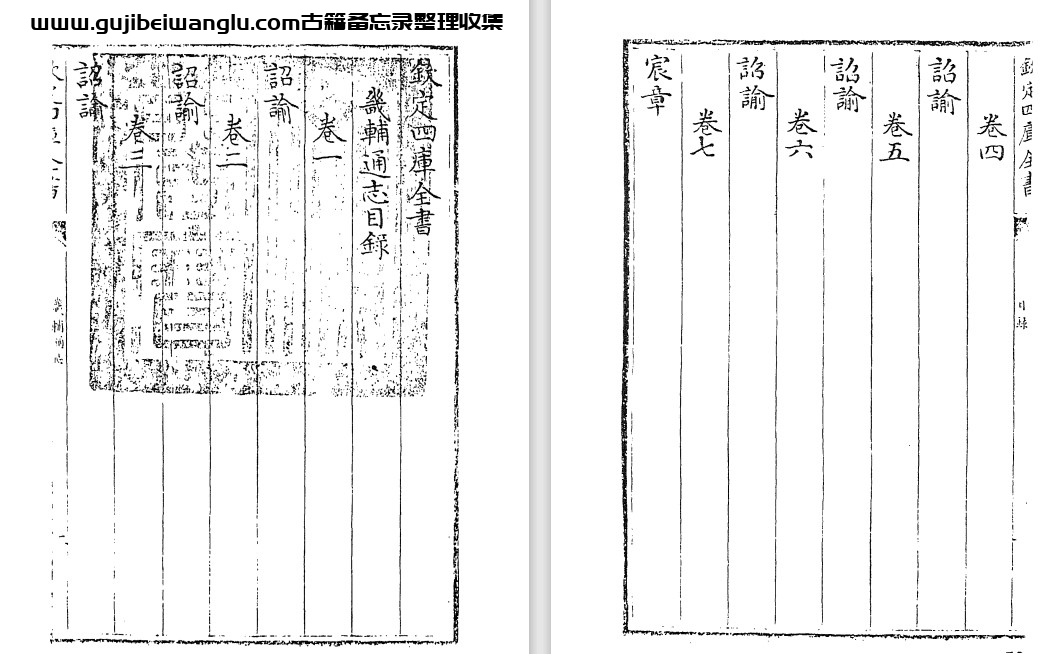 www.gujibeiwanglu.com古籍备忘录整理收集
欽定四庫全書
畿輔通志目錄
卷一
詔諭
卷二
詔諭
卷三
詔諭
欽定四庫全書
卷四
詔諭
卷五
詔諭
卷六
詔諭
卷七
宸章